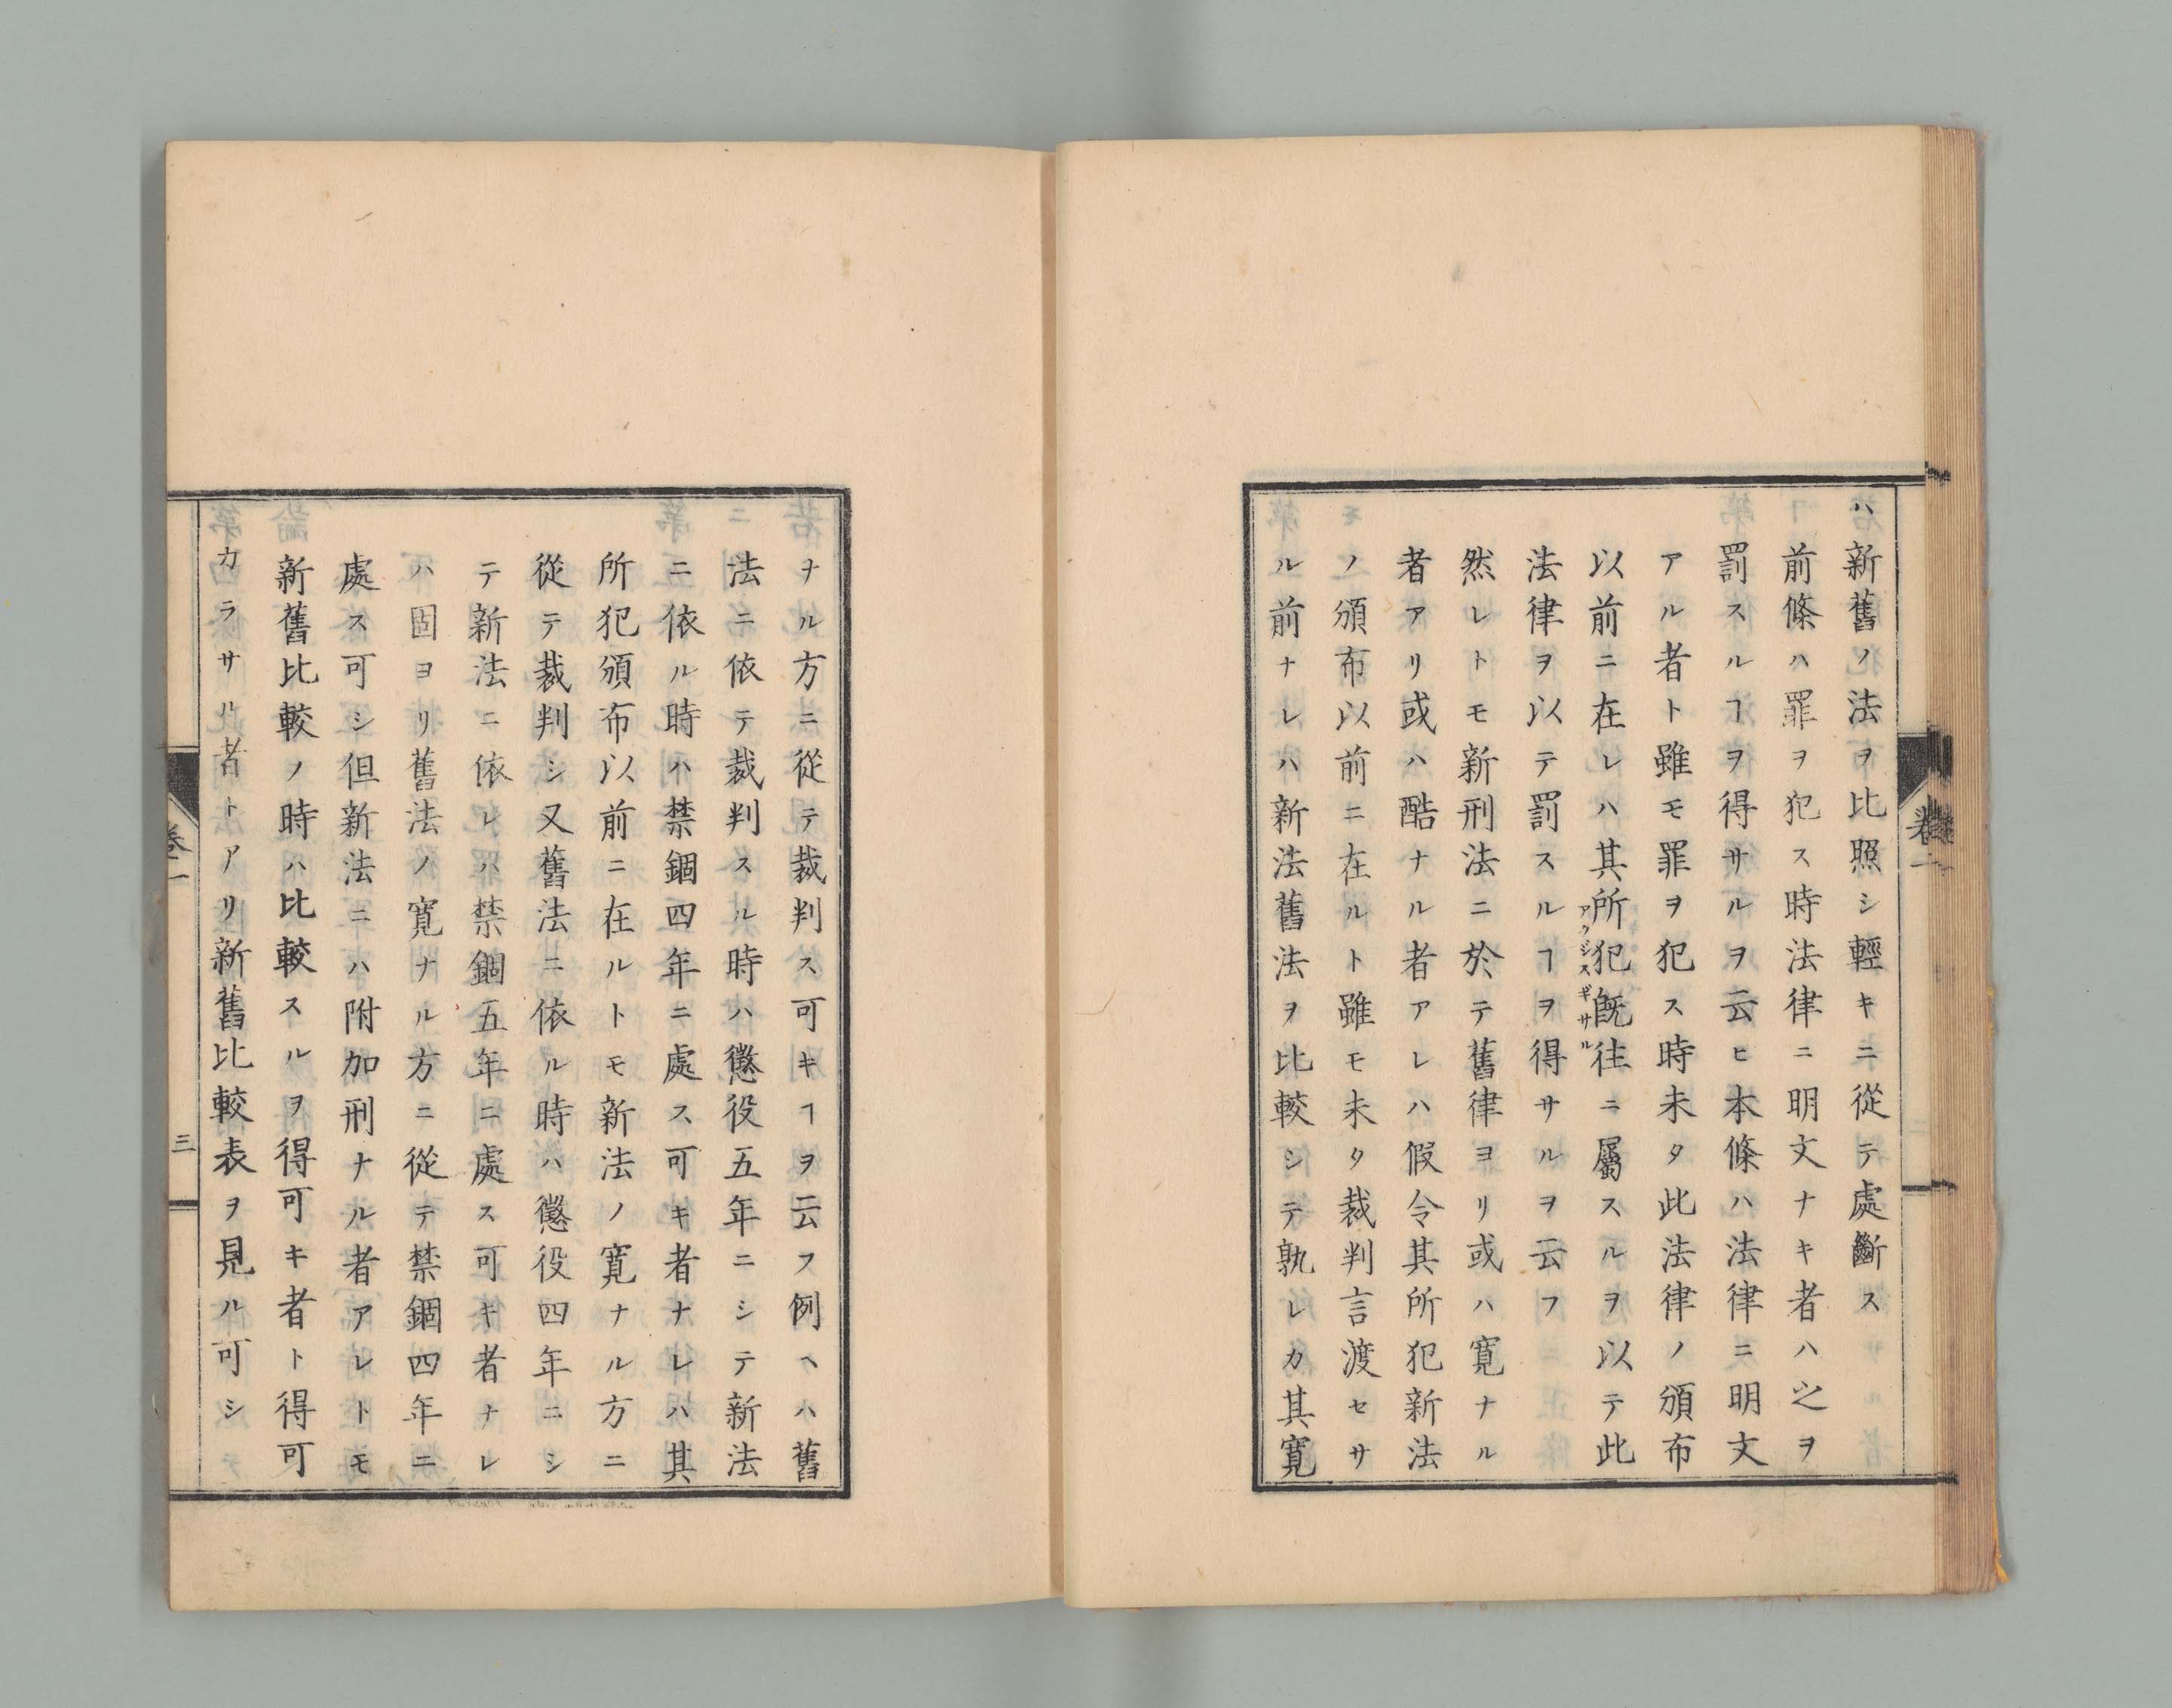 ハ新舊ノ法ヲ比照シ輕キニ從テ處斷ス
前條ハ罪ヲ犯ス時法律ニ明文ナキ者ハ之ヲ
罰スルヿヲ得サルヲ云ヒ本條ハ法律ニ明文
アル者ト雖モ罪ヲ犯ス時未タ此法律ノ頒布
以前ニ在レハ其所犯既往ニ屬スルヲ以テ此
アクジスギサル
法律ヲ以テ罰スルヿヲ得サルヲ云フ
然レトモ新刑法ニ於テ舊律ヨリ或ハ寛ナル
者アリ或ハ酷ナル者アレハ假令其所犯新法
ノ頒布以前ニ在ルト雖モ未タ裁判言渡セサ
ル前ナレハ新法舊法ヲ比較シテ孰レカ其寛
卷一
ナル方ニ從テ裁判ス可キヿヲ云フ例ヘハ舊
法ニ依テ裁判スル時ハ懲役五年ニシテ新法
ニ依ル時ハ禁錮四年ニ處ス可キ者ナレハ其
所犯頒布以前ニ在ルトモ新法ノ寛ナル方ニ
從テ裁判シ又舊法ニ依ル時ハ懲役四年ニシ
テ新法ニ依レハ禁錮五年ニ處ス可キ者ナレ
ハ固ヨリ舊法ノ寛ナル方ニ從テ禁錮四年ニ
處ス可シ但新法ニハ附加刑ナル者アレトモ
新舊比較ノ時ハ比較スルヲ得可キ者ト得可
カラサル者トアリ新舊比較表ヲ見ル可シ
卷一
三